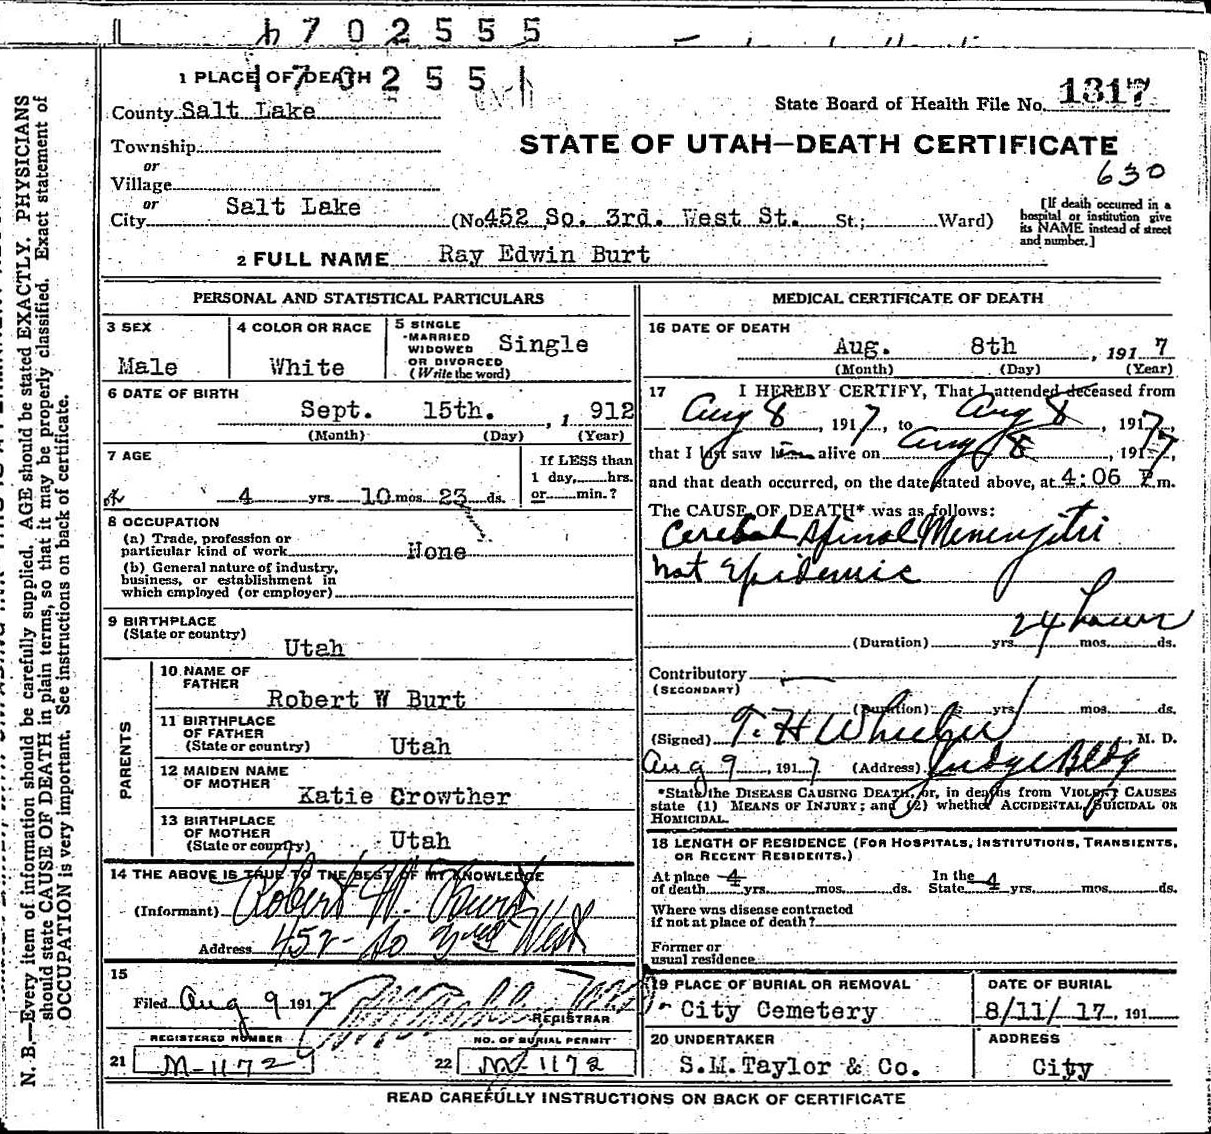 4702555
1 PLACE OF DEATH
1702551
County Salt Lake
State Board of Health File No. 1317
Township
STATE OF UTAH—DEATH CERTIFICATE
or
Village
630
or
City Salt Lake (No 452 So. 3rd. West St. St.; Ward)
[If death occurred in a hospital or institution give its NAME instead of street and number.]
2 FULL NAME Ray Edwin Burt
PERSONAL AND STATISTICAL PARTICULARS
3 SEX
Male
4 COLOR OR RACE
White
5 SINGLE
MARRIED
WIDOWED
OR DIVORCED
(Write the word)
Single
6 DATE OF BIRTH
Sept. 15th. , 1912
(Month) (Day) (Year)
7 AGE
4 yrs. 10 mos. 23 ds.
If LESS than
1 day, hrs.
or min.?
8 OCCUPATION
(a) Trade, profession or
particular kind of work None
(b) General nature of industry,
business, or establishment in
which employed (or employer)
9 BIRTHPLACE
(State or country)
Utah
PARENTS
10 NAME OF
FATHER
Robert W Burt
11 BIRTHPLACE
OF FATHER
(State or country) Utah
12 MAIDEN NAME
OF MOTHER
Katie Crowther
13 BIRTHPLACE
OF MOTHER
(State or country) Utah
14 THE ABOVE IS TRUE TO THE BEST OF MY KNOWLEDGE
(Informant) Robert W. Burt
Address 452 So 3rd West
15
Filed Aug 9 1917
REGISTRAR
REGISTERED NUMBER
21 M-1172
NO. OF BURIAL PERMIT
22 M-1172
MEDICAL CERTIFICATE OF DEATH
16 DATE OF DEATH
Aug. 8th , 1917
(Month) (Day) (Year)
17 I HEREBY CERTIFY, That I attended deceased from
Aug 8, 1917, to Aug 8, 1917,
that I last saw him alive on Aug 8, 1917,
and that death occurred, on the date stated above, at 4:06 P.m.
The CAUSE OF DEATH* was as follows:
Cerebral Spinal Meningitis
not Epidemic
24 hours
(Duration) yrs. mos. ds.
Contributory
(SECONDARY)
(Duration) yrs. mos. ds.
(Signed) T. H Wheeler M. D.
Aug 9, 1917 (Address) Judge Bldg
*State the DISEASE CAUSING DEATH, or, in deaths from VIOLENT CAUSES
state (1) MEANS OF INJURY; and (2) whether ACCIDENTAL, SUICIDAL OR
HOMICIDAL.
18 LENGTH OF RESIDENCE (FOR HOSPITALS, INSTITUTIONS, TRANSIENTS,
OR RECENT RESIDENTS.)
At place
of death 4 yrs. mos. ds.
In the
State 4 yrs. mos. ds.
Where was disease contracted
if not at place of death?
Former or
usual residence
19 PLACE OF BURIAL OR REMOVAL
City Cemetery
DATE OF BURIAL
8/11/ 17, 191
20 UNDERTAKER
S.M.Taylor & Co.
ADDRESS
City
READ CAREFULLY INSTRUCTIONS ON BACK OF CERTIFICATE
N. B.—Every item of information should be carefully supplied. AGE should be stated EXACTLY. PHYSICIANS
should state CAUSE OF DEATH in plain terms, so that it may be properly classified. Exact statement of
OCCUPATION is very important. See instructions on back of certificate.